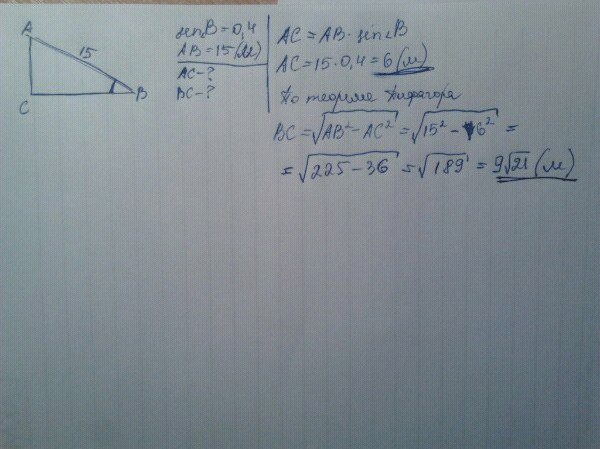 A
15
C
B
sin B = 0,4
AB = 15 (м)
AC - ?
BC - ?
AC = AB · sin∠B
AC = 15 · 0,4 = 6 (м)
По теореме Пифагора
BC = √AB² - AC² = √15² - 6² =
= √225 - 36 = √189 = 9√21 (м)